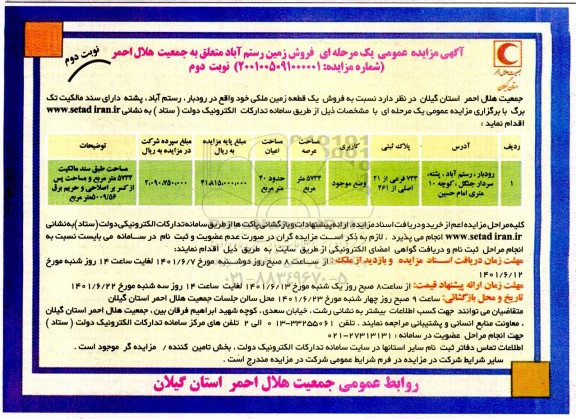 آگهی مزایده عمومی یک مرحله ای فروش زمین رستم آباد متعلق به جمعیت هلال احمر
(شماره مزایده: ۲۰۰۱۰۰۵۰۹۱۰۰۰۰۰۱) نوبت دوم
نوبت دوم
جمعیت هلال احمر
استان گیلان
جمعیت هلال احمر استان گیلان در نظر دارد نسبت به فروش یک قطعه زمین ملکی خود واقع در رودبار، رستم آباد، پشته دارای سند مالکیت تک
برگ با برگزاری مزایده عمومی یک مرحله ای با مشخصات ذیل از طریق سامانه تدارکات الکترونیک دولت ( ستاد ) به نشانی www.setad iran.ir
اقدام نماید :
ردیف آدرس پلاک ثبتی کاربری مساحت عرصه مساحت اعیان مبلغ پایه مزایده به ریال مبلغ سپرده شرکت در مزایده به ریال توضیحات
۱ رودبار، رستم آباد، پشته، سردار جنگل، کوچه ۱۰ متری امام حسین ۷۳۳ فرعی از ۲۱ اصلی از ۴۶۱ وضع موجود ۵۷۳۳ متر مربع حدود ۴۰ متر مربع ۴۱،۸۱۵،۰۰۰،۰۰۰ ۲،۰۹۰،۷۵۰،۰۰۰ مساحت طبق سند مالکیت ۵۷۳۳ متر مربع و مساحت پس از کسر بر اصلاحی و حریم برق ۵۰۰۹/۵۶ متر مربع
کلیه مراحل مزایده اعم از خرید و دریافت اسناد مزایده، ارائه پیشنهادات و بازگشائی پاکت ها از طریق سامانه تدارکات الکترونیکی دولت (ستاد) به نشانی
www.setad iran.ir انجام می پذیرد . لازم به ذکر است مزایده گران در صورت عدم عضویت و ثبت نام در سامانه می بایست نسبت به
انجام مراحل ثبت نام و دریافت گواهی امضای الکترونیکی از طریق سایت به طریق ذیل اقدام نمایند:
مهلت زمان دریافت اسناد مزایده و بازدید از ملک : از ساعت ۸ صبح روز دوشنبه مورخ ۱۴۰۱/۶/۷ لغایت ساعت ۱۴ روز شنبه مورخ
۱۴۰۱/۶/۱۲
مهلت زمان ارائه پیشنهاد قیمت: از ساعت ۸ صبح روز یک شنبه مورخ ۱۴۰۱/۶/۱۳ لغایت ساعت ۱۴ روز سه شنبه مورخ ۱۴۰۱/۶/۲۲
تاریخ و محل بازگشائی: ساعت ۹ صبح روز چهار شنبه مورخ ۱۴۰۱/۶/۲۳ محل سالن جلسات جمعیت هلال احمر استان گیلان
متقاضیان می توانند جهت کسب اطلاعات بیشتر به نشانی رشت، خیابان سعدی، کوچه شهید ابراهیم فرقان بین، جمعیت هلال احمر استان گیلان
، معاونت منابع انسانی و پشتیبانی مراجعه نمایند . تلفن ۳۳۲۵۵۰۶۱-۰۱۳ الی ۲ تلفن های مرکز سامانه تدارکات الکترونیک دولت ( ستاد )
جهت انجام مراحل عضویت در سامانه : ۲۷۳۱۳۱۳۱-۰۲۱
اطلاعات تماس دفاتر ثبت نام سایر استانها در سایت سامانه تدارکات الکترونیک دولت ، بخش تامین کننده / مزایده گر موجود است .
سایر شرایط شرکت در مزایده در فرم شرایط عمومی شرکت در مزایده مندرج است .
روابط عمومی جمعیت هلال احمر استان گیلان
۰۲۱-۸۸۳۴۹۶۷۰-۵